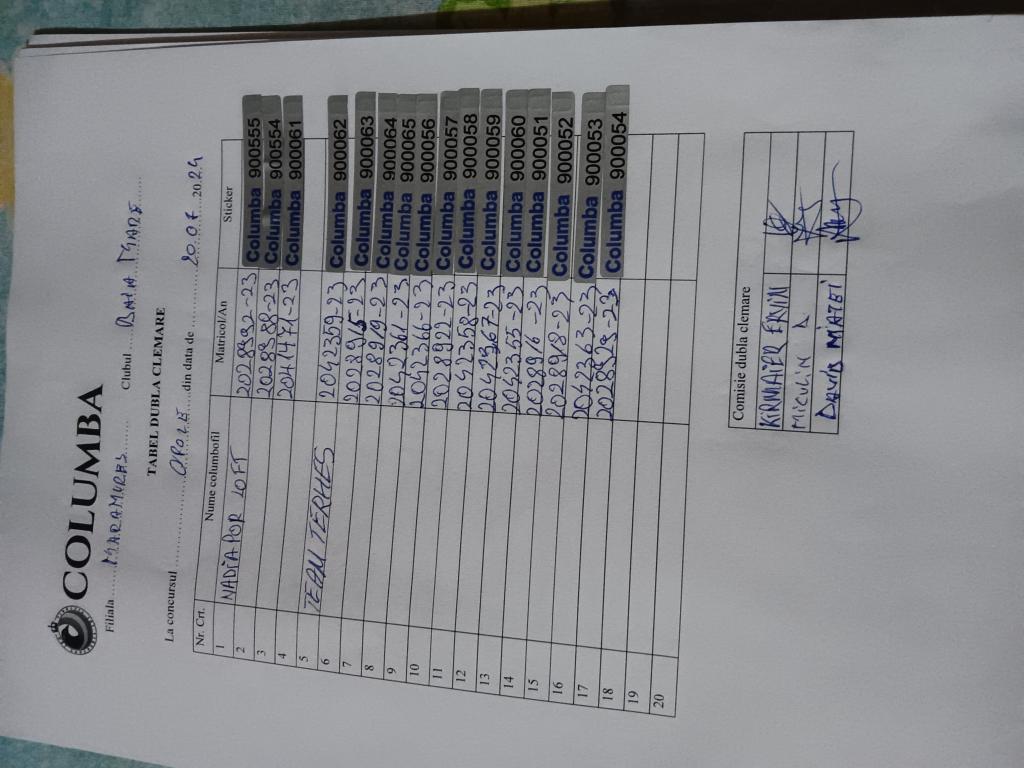 COLUMBA
Filiala ....MARAMUREȘ........ Clubul ....BAIA MARE......
TABEL DUBLA CLEMARE
La concursul ..........OPOLE.......din data de ..........20.07...2024
Nr. Crt. Nume columbofil Matricol/An Sticker
1 NADIAPOR LOFT
2 2028932-23 Columba 900555
3 2028938-23 Columba 900554
4 2041471-23 Columba 900061
5 TEAM TERHES
6 2042359-23 Columba 900062
7 2028915-23 Columba 900063
8 2028919-23 Columba 900064
9 2042361-23 Columba 900065
10 2042366-23 Columba 900056
11 2028922-23 Columba 900057
12 2042358-23 Columba 900058
13 2042367-23 Columba 900059
14 2042355-23 Columba 900060
15 2028916-23 Columba 900051
16 2028918-23 Columba 900052
17 2042363-23 Columba 900053
18 Columba 900054
19
20
Comisie dubla clemare
KIRNAIER ERVIN
MICULIN A
DAVID MATEI